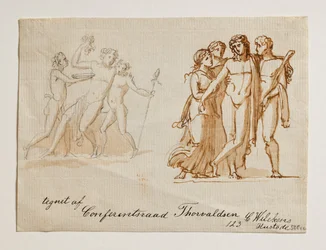 tegnet af
Conferentsraad Thorvaldsen
123
C. Wilckens